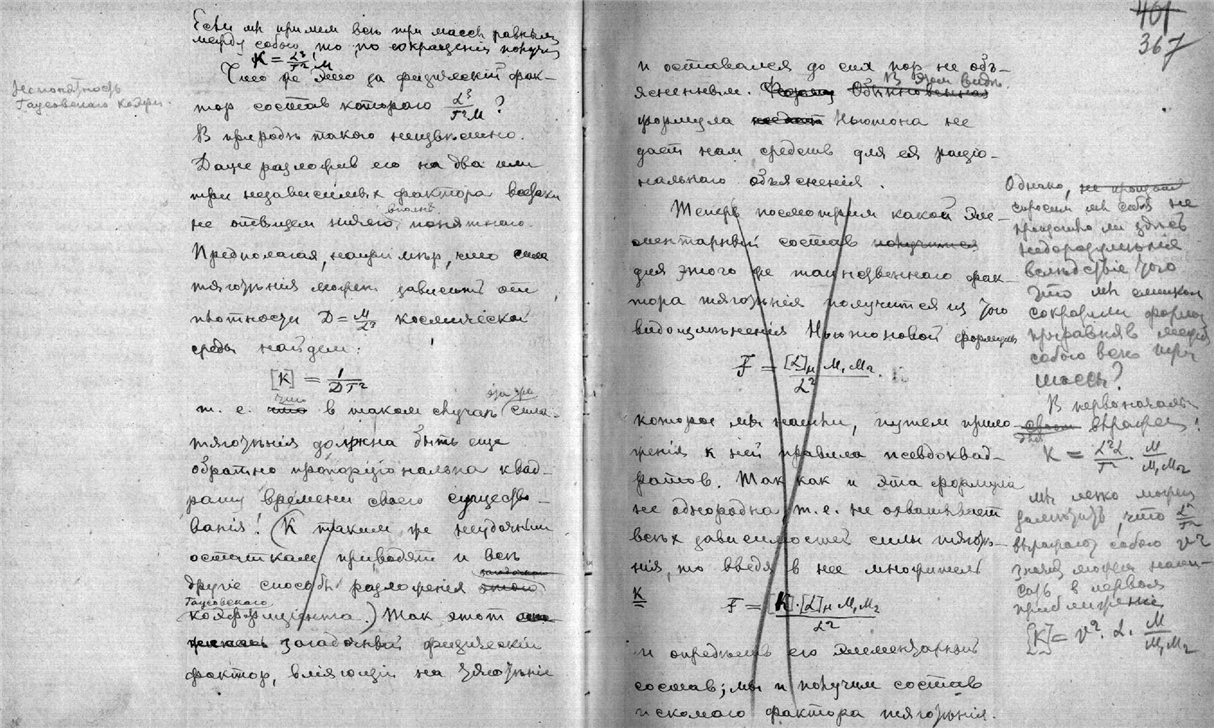 Если мы примем всѣ три массы равными
между собою, то по сокращенiи получимъ
K = L³/T² M
Что же это за физическiй фак-
торъ составъ котораго L³/T²M ?
Въ природѣ такого неизвѣстно.
Даже разложивъ его на два или
три независимыхъ фактора
не отыщемъ ничего вполнѣ понятнаго.
Предполагая, напримѣръ, что сила
тяготѣнiя можетъ зависить отъ
плотности D = M/L³ космической
среды найдемъ:
[K] = 1/DT²
т. е. что въ такомъ случаѣ эта же сила
тяготѣнiя должна быть еще
обратно пропорцiональна квад-
рату времени своего существо-
ванiя! (К такимъ же неудобнымъ
остаткамъ приводятъ и всѣ
другiе способы разложенiя
Гауссовскаго
коэффицiента.) Такъ этотъ
загадочный физическiй
факторъ, влiяющiй на тяготѣнiе
Непонятность
Гауссовскаго коэфи.
401
367
и оставался до сихъ поръ не объ-
ясненнымъ. Въ этомъ видѣ
формула Ньютона не
даетъ намъ средствъ для ея рацiо-
нальнаго объясненiя.
Теперь посмотримъ какой эле-
ментарный составъ получится
для этого же таинственнаго фак-
тора тяготѣнiя получится изъ того
видоизмѣненiя Ньютоновой формулы
F = [L]μ M₁ M₂ / L².
которое мы нашли, путемъ прило-
женiя къ ней правила псевдоквад-
ратовъ. Такъ какъ и эта формула
не однородна т. е. не охватываетъ
всѣхъ зависимостей силы тяготѣ-
нiя, то введя въ нее множитель
K
F = [K]·[L]μ M₁ M₂ / L²
и опредѣливъ его элементарный
составъ, мы и получимъ составъ
искомаго фактора тяготѣнiя.
Однако, не
спросимъ мы себя не
произошло ли здѣсь
недоразумѣнiя
вслѣдствiе того
что мы слишкомъ
сократили формулу
приравнявъ между
собою всѣ три
массы?
Въ первоначаль-
номъ выраженiи
K = L²L/T² · M/M₁M₂
мы легко можемъ
замѣтить, что L²/T²
выражаетъ собою v²
значитъ можемъ напи-
сать въ первомъ
приближенiи
[K] = v² · L · M/M₁M₂